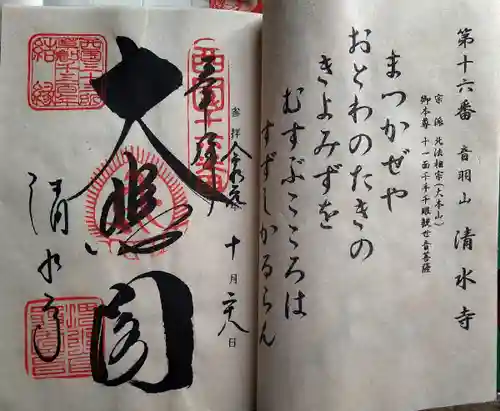 第十六番　音羽山　清水寺
宗派　北法相宗(大本山)
御本尊　十一面千手千眼観世音菩薩
まつかぜや
おとわのたきの
きよみずを
むすぶこころは
すずしかるらん
奉拝
参拝 令和元年 十月 二十八日
大悲閣
清水寺